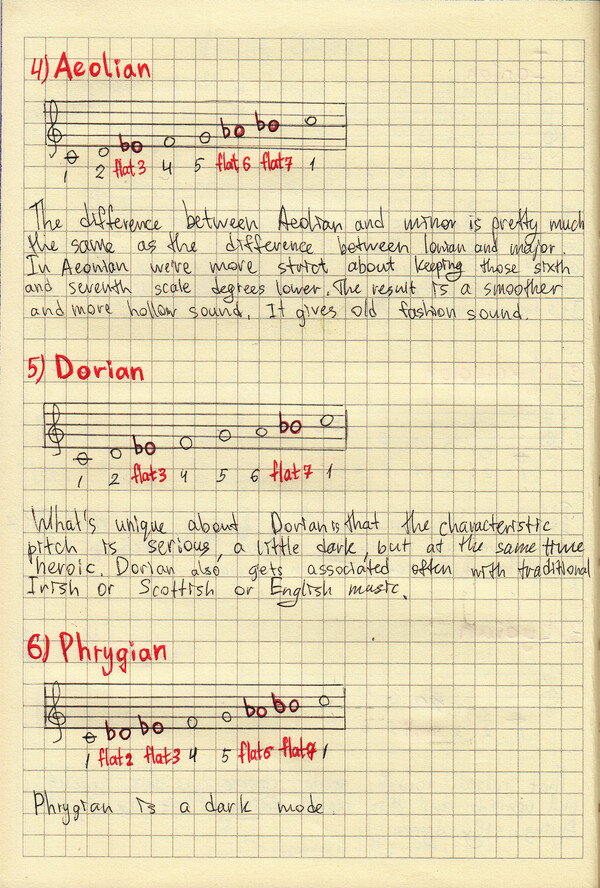 4) Aeolian
1 2 flat3 4 5 flat6 flat7 1
The difference between Aeolian and minor is pretty much
the same as the difference between Ionian and major.
In Aeonian we're more strict about keeping those sixth
and seventh scale degrees lower. The result is a smoother
and more hollow sound. It gives old fashion sound.
5) Dorian
1 2 flat3 4 5 6 flat7 1
What's unique about Dorian is that the characteristic
pitch is serious, a little dark, but at the same time
heroic. Dorian also gets associated often with traditional
Irish or Scottish or English music.
6) Phrygian
1 flat2 flat3 4 5 flat6 flat7 1
Phrygian is a dark mode.